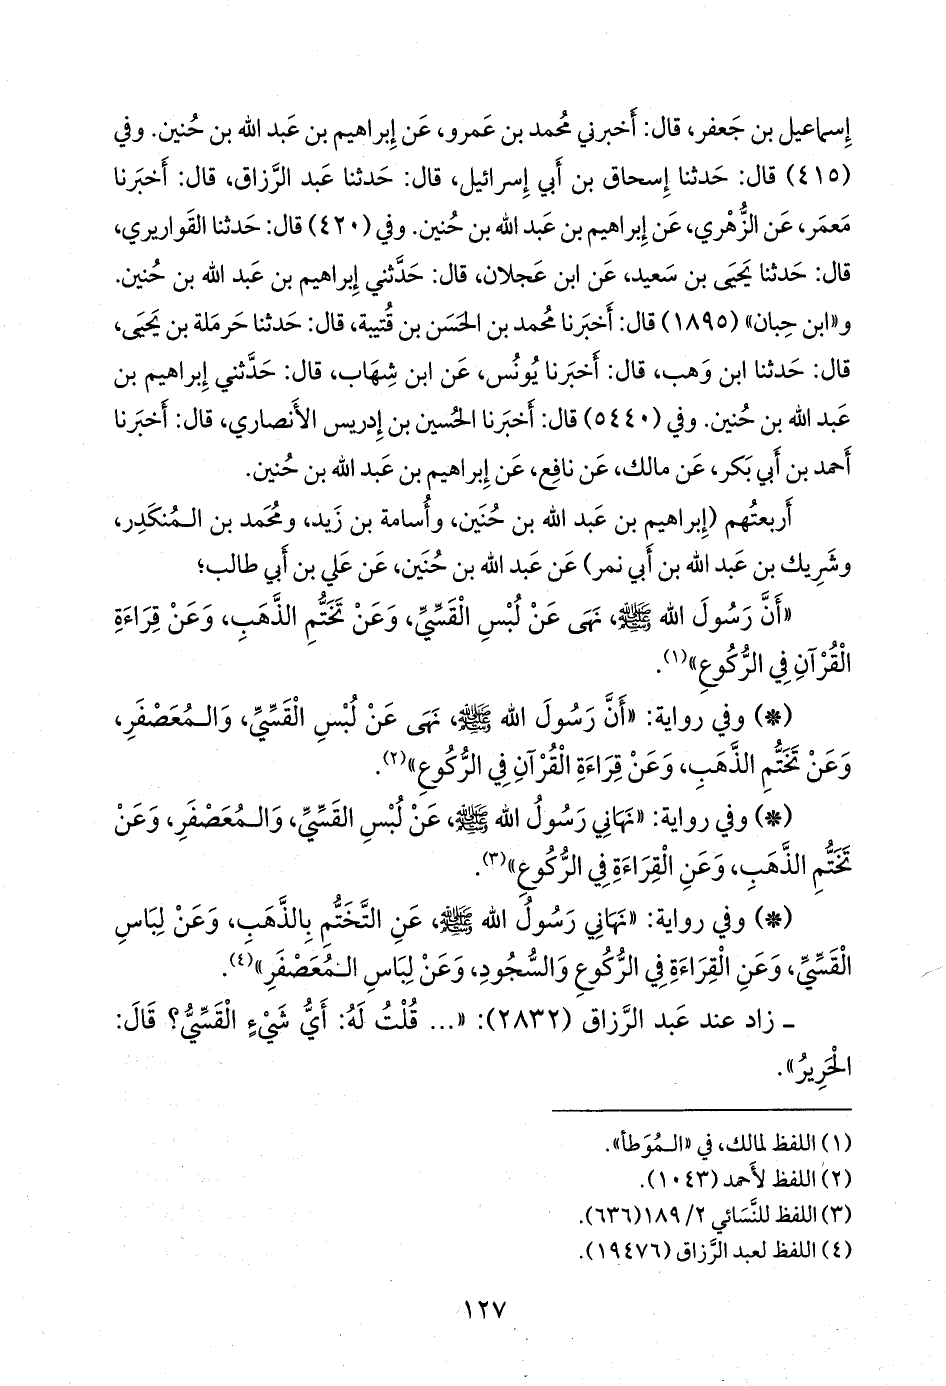 إسماعيل بن جَعفر، قال: أَخبرني مُحمد بن عَمرو، عَن إِبراهيم بن عَبد الله بن حُنين. وفي
(٤١٥) قال: حَدثنا إِسحاق بن أَبي إِسرائيل، قال: حَدثنا عَبد الرَّزاق، قال: أَخبَرنا
مَعمَر، عَن الزُّهْري، عَن إِبراهيم بن عَبد الله بن حُنين. وفي (٤٢٠) قال: حَدثنا القَواريري،
قال: حَدثنا يَحيَى بن سَعيد، عَن ابن عَجلان، قال: حَدَّثني إِبراهيم بن عَبد الله بن حُنين.
و«ابن حِبان» (١٨٩٥) قال: أَخبَرنا مُحمد بن الحَسَن بن قُتيبة، قال: حَدثنا حَرمَلة بن يَحيَى،
قال: حَدثنا ابن وَهب، قال: أَخبَرنا يُونُس، عَن ابن شِهاب، قال: حَدَّثني إِبراهيم بن
عَبد الله بن حُنين. وفي (٥٤٤٠) قال: أَخبَرنا الحُسين بن إِدريس الأَنصاري، قال: أَخبَرنا
أَحمد بن أَبي بَكر، عَن مالك، عَن نافِع، عَن إِبراهيم بن عَبد الله بن حُنين.
أَربعتُهم (إِبراهيم بن عَبد الله بن حُنَين، وأُسامة بن زَيد، ومُحَمد بن المُنكَدِر،
وشَرِيك بن عَبد الله بن أَبي نمر) عَن عَبد الله بن حُنَين، عَن عَلي بن أَبي طالب؛
«أَنَّ رَسُولَ الله ﷺ، نَهَى عَنْ لُبْسِ الْقَسِّيِّ، وَعَنْ تَخَتُّمِ الذَّهَبِ، وَعَنْ قِرَاءَةِ
الْقُرْآنِ فِي الرُّكُوعِ»(١).
(*) وفي رواية: «أَنَّ رَسُولَ الله ﷺ، نَهَى عَنْ لُبْسِ الْقَسِّيِّ، وَالمُعَصْفَرِ،
وَعَنْ تَخَتُّمِ الذَّهَبِ، وَعَنْ قِرَاءَةِ الْقُرْآنِ فِي الرُّكُوعِ»(٢).
(*) وفي رواية: «نَهَانِي رَسُولُ الله ﷺ، عَنْ لُبْسِ القَسِّيِّ، وَالمُعَصْفَرِ، وَعَنْ
تَخَتُّمِ الذَّهَبِ، وَعَنِ الْقِرَاءَةِ فِي الرُّكُوعِ»(٣).
(*) وفي رواية: «نَهَانِي رَسُولُ الله ﷺ، عَنِ التَّخَتُّمِ بِالذَّهَبِ، وَعَنْ لِبَاسِ
الْقَسِّيِّ، وَعَنِ الْقِرَاءَةِ فِي الرُّكُوعِ وَالسُّجُودِ، وَعَنْ لِبَاسِ المُعَصْفَرِ»(٤).
ـ زاد عند عَبد الرَّزاق (٢٨٣٢): «... قُلْتُ لَهُ: أَيُّ شَيْءٍ الْقَسِّيُّ؟ قَالَ:
الْحَرِيرُ».
(١) اللفظ لمالك، في «المُوَطأ».
(٢) اللفظ لأَحمد (١٠٤٣).
(٣) اللفظ للنَّسَائي ٢/ ١٨٩(٦٣٦).
(٤) اللفظ لعبد الرَّزاق (١٩٤٧٦).
١٢٧